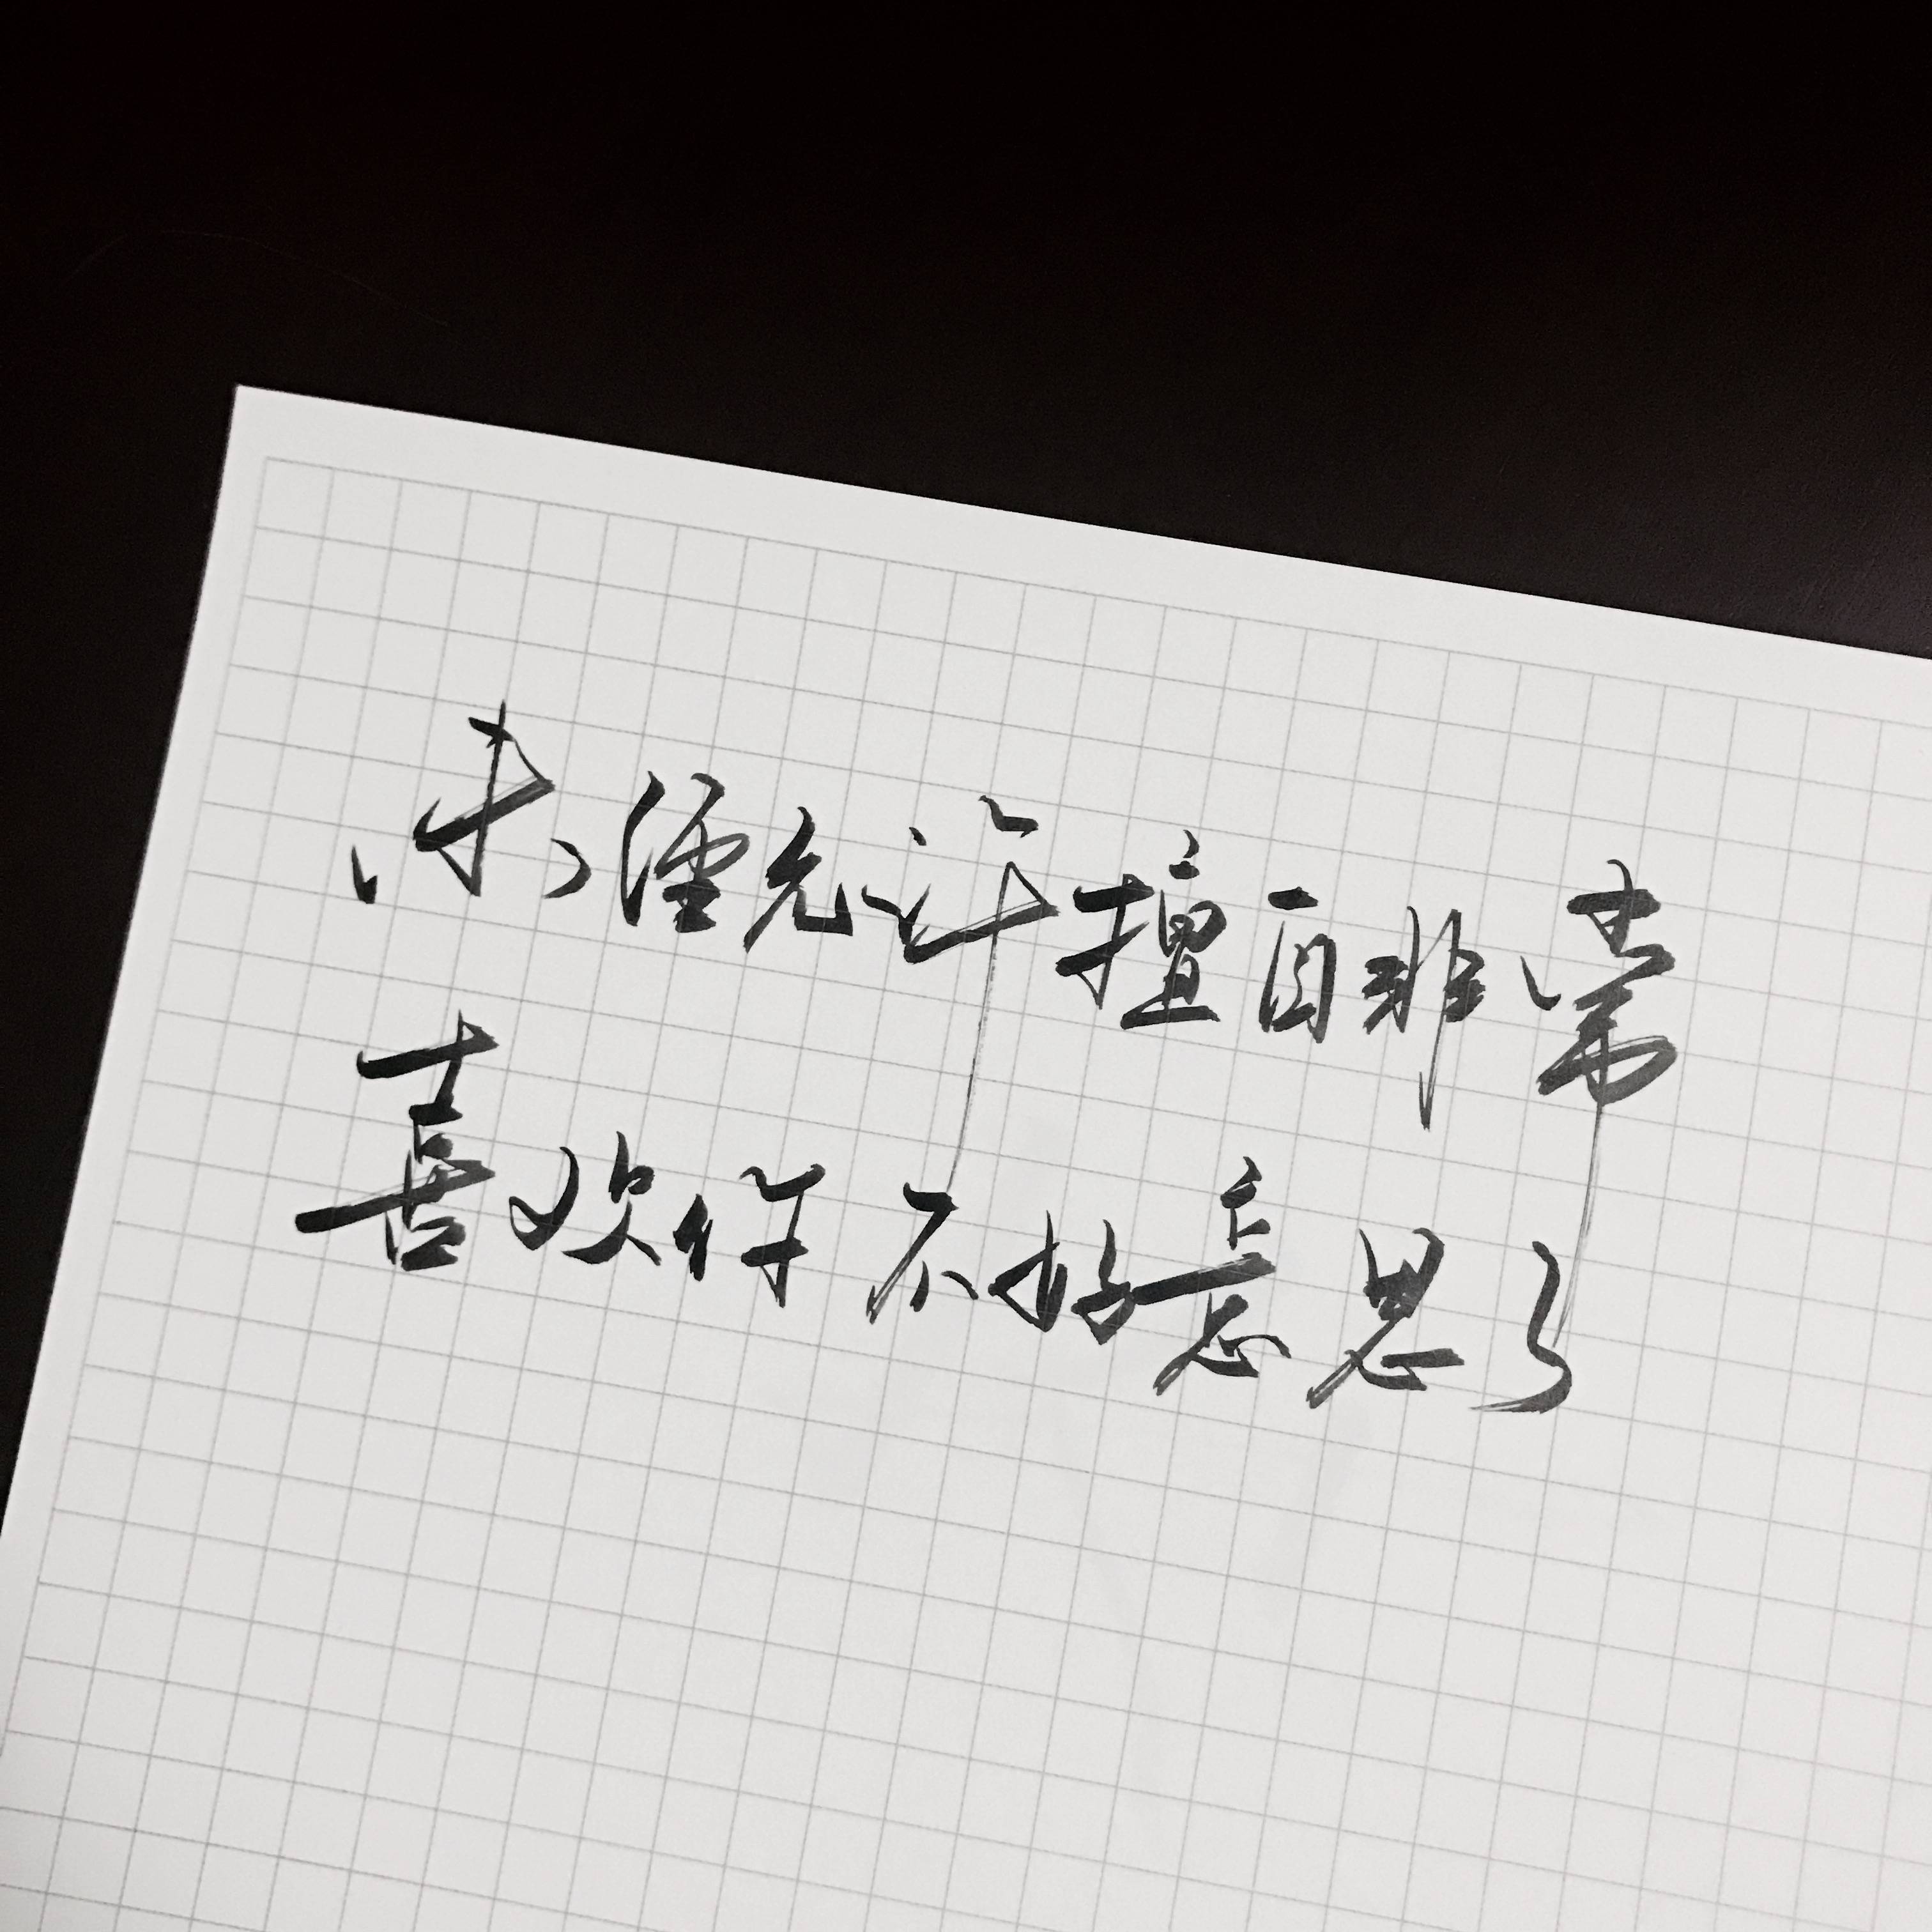 未经允许擅自非常
喜欢你不好意思了